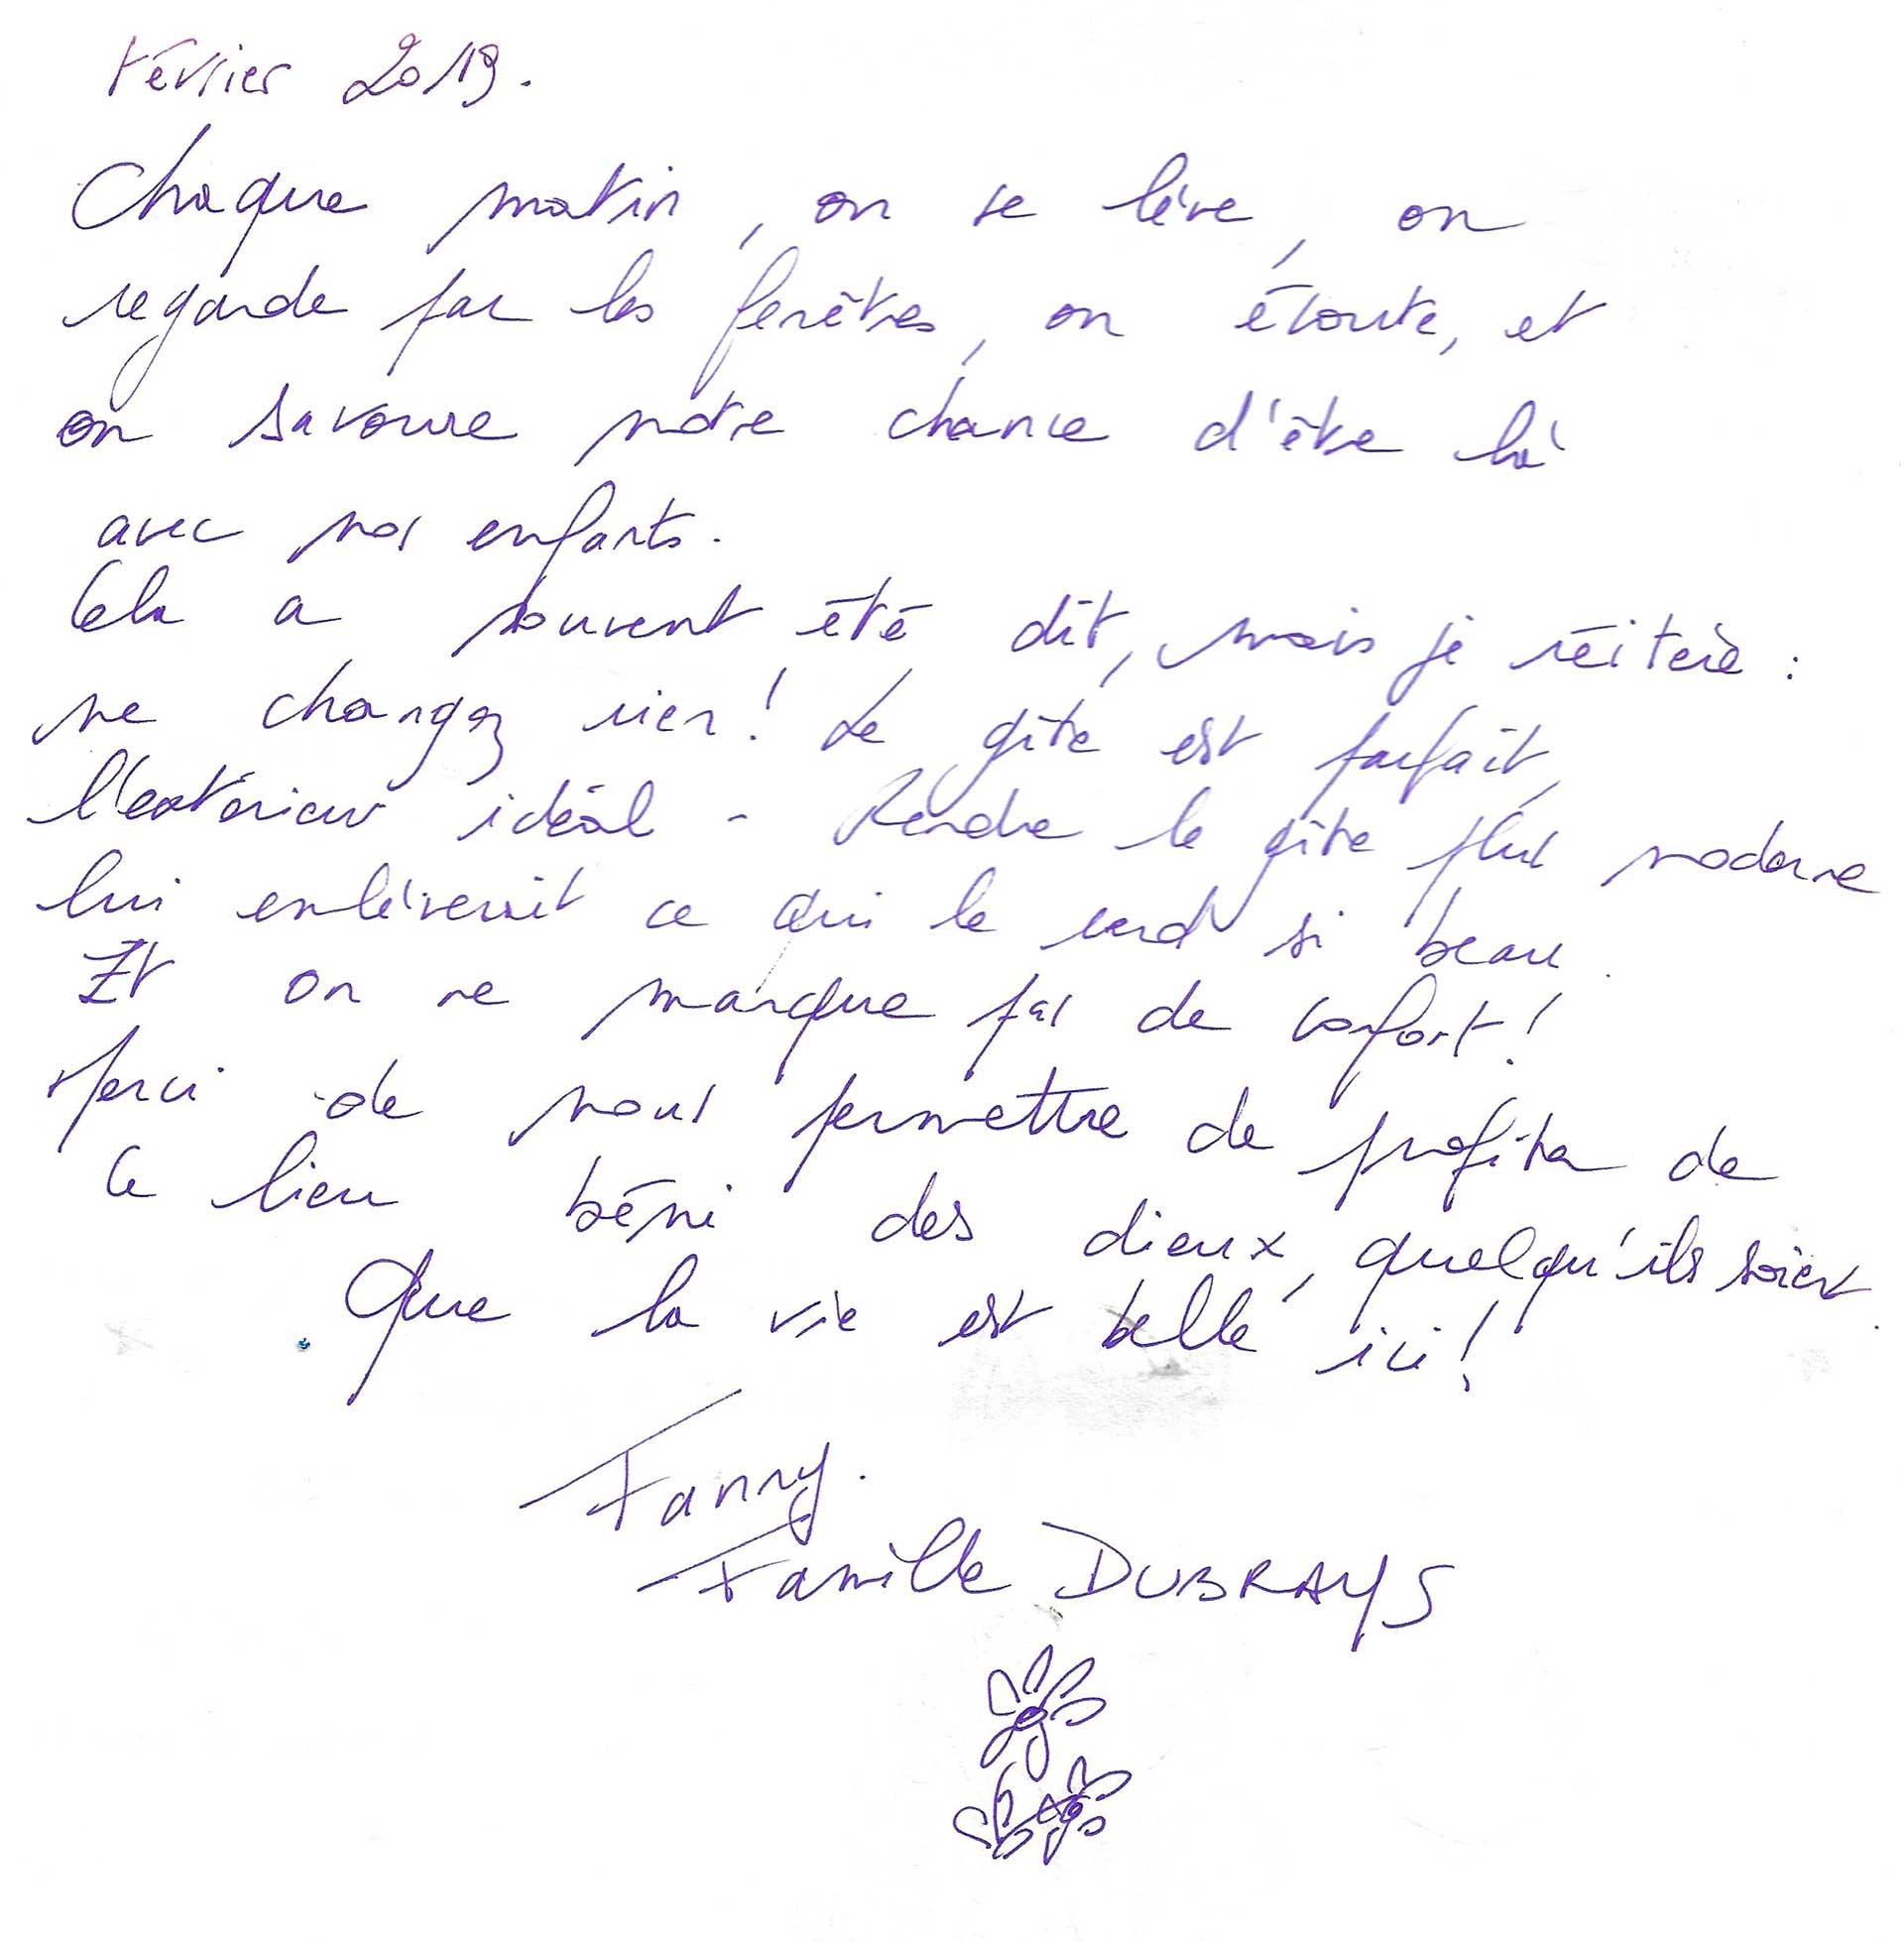 Février 2019.
Chaque matin, on se lève, on
regarde par les fenêtres, on écoute, et
on savoure notre chance d'être là
avec nos enfants.
Cela a souvent été dit, mais je réitère :
ne changez rien ! Le gîte est parfait,
l'extérieur idéal - Rendre le gîte plus moderne
lui enlèverait ce qui le rend si beau.
Et on ne manque pas de confort !
Merci de nous permettre de profiter de
ce lieu béni des dieux, quelqu'ils soient.
Que la vie est belle ici !
Fanny.
Famille DUBRAYS